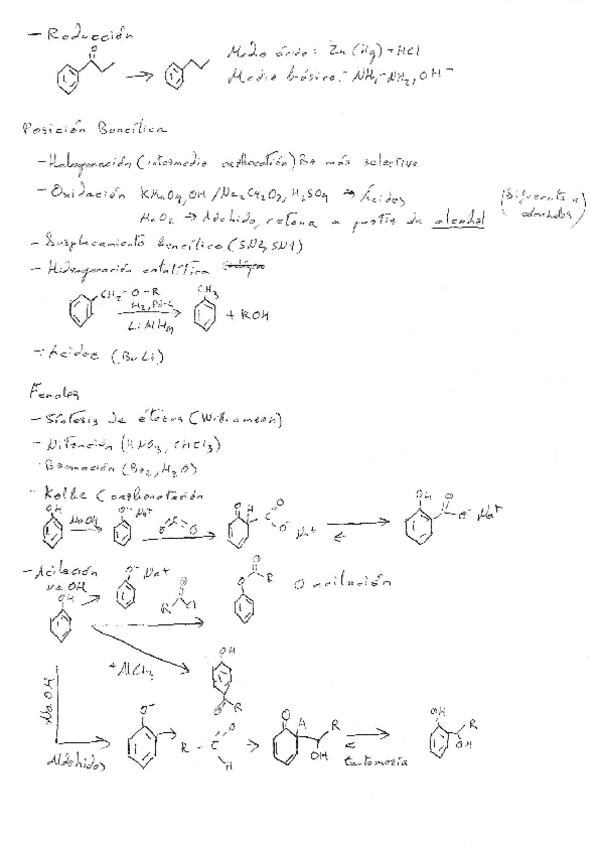 - Reducción
O
Medio ácido: Zn(Hg) + HCl
Medio básico: NH2-NH2, OH-
Posición Bencílica
- Halogenación (intermedio carbocatión) Br más selectivo
- Oxidación KMnO4, OH / Na2Cr2O7, H2SO4 → Ácidos
MnO2 → Aldehido, cetona a partir de alcohol
(Diferente a alcoholes)
- Desplazamiento bencílico (SN2, SN1)
- Hidrogenación catalítica
CH2-O-R
H2, Pd-C
LiAlH4
CH3
+ ROH
- Ácidos (BuLi)
Fenoles
- Síntesis de éteres (Williamson)
- Nitración (HNO3, CHCl3)
- Bromación (Br2, H2O)
- Kolbe (carbonatación
OH NaOH O- Na+ O C O O H C O O- Na+ OH O O- Na+
- Acilación
NaOH
OH O- Na+ R O Cl O O R O acilación
+ AlCl3
OH
O R
NaOH
Aldehidos
O- R - C O H O H R OH OH R OH
tautomería